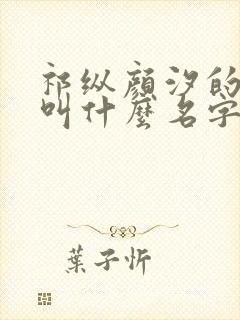 祁纵顏汐的
叫什麼名字
葉子忻